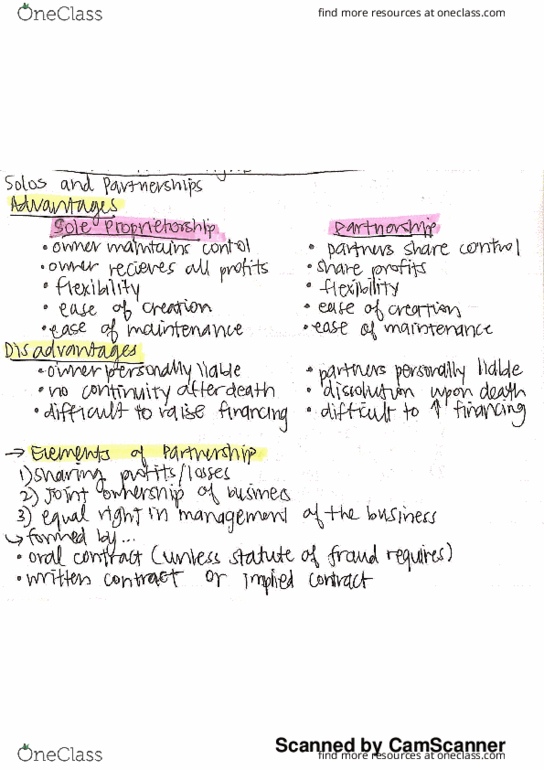 OneClass find more resources at oneclass.com
Solos and Partnerships
Advantages
Sole Proprietorship Partnership
• owner maintains control • partners share control
• owner recieves all profits • share profits
• flexibility • flexibility
• ease of creation • ease of creation
• ease of maintenance • ease of maintenance
Disadvantages
• owner personally liable • partners personally liable
• no continuity after death • dissolution upon death
• difficult to raise financing • difficult to ↑ financing
→ Elements of Partnership
1) sharing profits/losses
2) Joint ownership of business
3) equal right in management of the business
↳ formed by...
• oral contract (unless statute of fraud requires)
• written contract or implied contract
Scanned by CamScanner
OneClass find more resources at oneclass.com